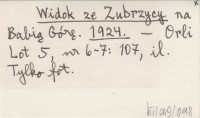 Widok ze Zubrzycy na
Babią Górę. 1924. — Orli
Lot 5, nr 6-7: 107, il.
Tylko fot.